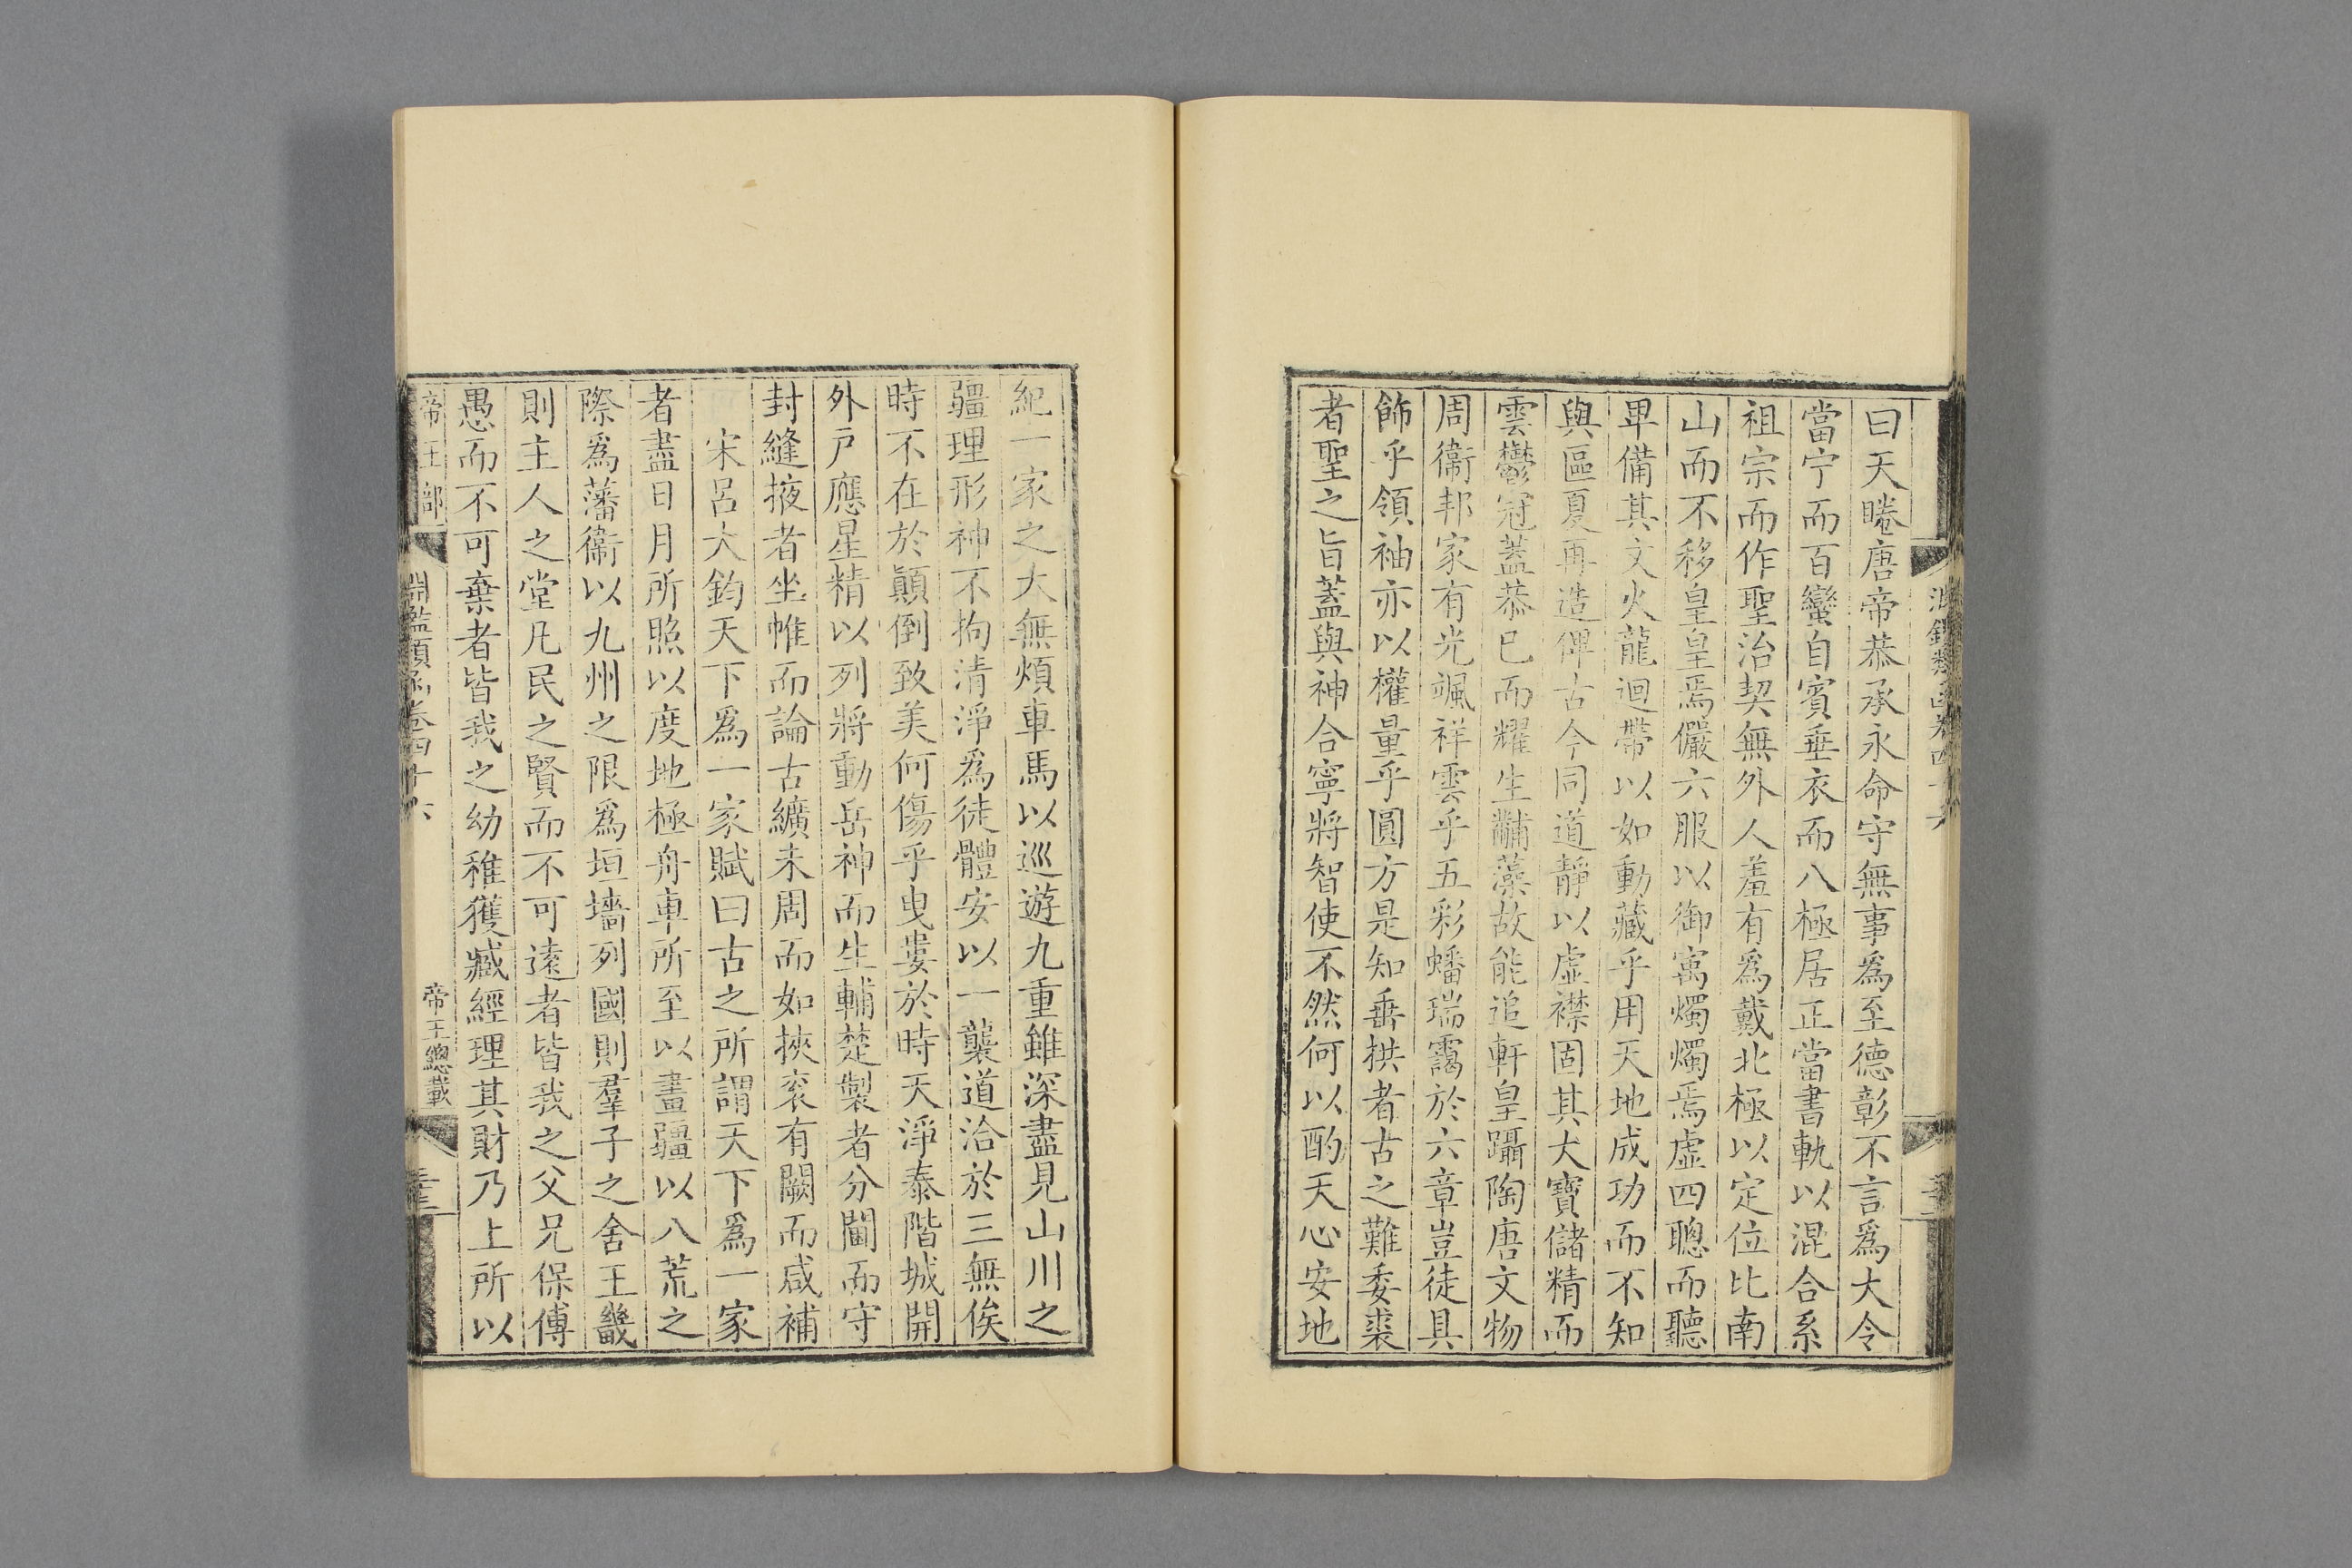 曰天睠唐帝恭承永命守無事爲至德彰不言爲大令
當宁而百蠻自賓垂衣而八極居正當書軌以混合系
祖宗而作聖治契無外人羞有爲戴北極以定位比南
山而不移皇皇焉儼六服以御寓燭燭焉虛四聰而聽
卑備其文火龍迴帶以如動藏乎用天地成功而不知
與區夏再造俾古今同道靜以虛襟固其大寶儲精而
雲鬱冠蓋恭已而耀生黼藻故能追軒皇躡陶唐文物
周衞邦家有光颯祥雲乎五彩蟠瑞靄於六章豈徒具
飾乎領袖亦以權量乎圓方是知垂拱者古之難委裘
者聖之旨蓋與神合寧將智使不然何以酌天心安地
紀一家之大無煩車馬以巡遊九重雖深盡見山川之
疆理形神不拘清淨爲徒體安以一襲道洽於三無俟
時不在於顚倒致美何傷乎曳婁於時天淨泰階城開
外戸應星精以列將動岳神而生輔楚製者分閫而守
封縫掖者坐帷而論古纊未周而如挾衮有闕而咸補
宋呂大鈞天下爲一家賦曰古之所謂天下爲一家
者盡日月所照以度地極舟車所至以畫疆以八荒之
際爲藩衞以九州之限爲垣墻列國則羣子之舍王畿
則主人之堂凡民之賢而不可遠者皆我之父兄保傅
愚而不可棄者皆我之幼稚獲臧經理其財乃上所以
帝王部
淵鑑類函卷四十六
帝王總載